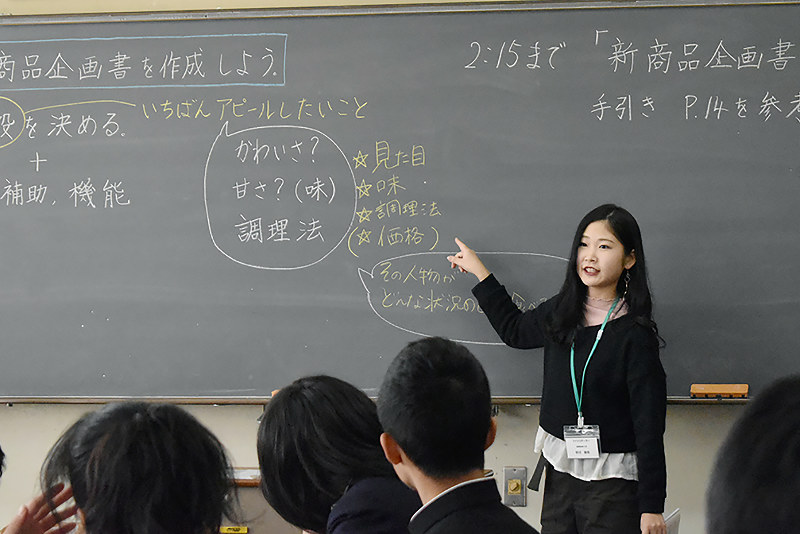 商品企画書を作成しよう。
を決める。
+
補助、機能
いちばんアピールしたいこと
かわいさ?
甘さ?(味)
調理法
☆見た目
☆味
☆調理法
(☆価格)
その人物が
どんな状況の
2:15まで「新商品企画書
手引き P.14を参考